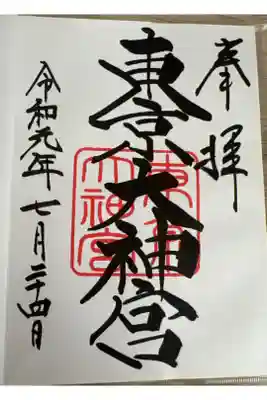 奉拝
東京大神宮
東京大神宮
令和元年七月二十四日